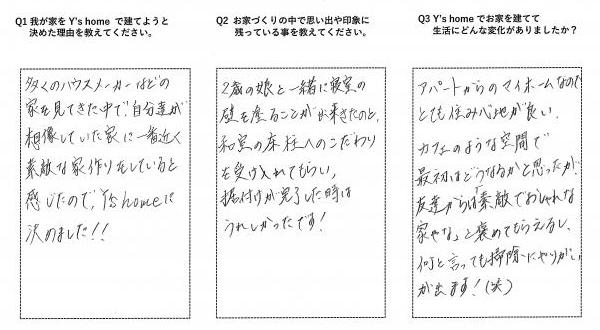 Q1 我が家を Y's home で建てようと
決めた理由を教えてください。
多くのハウスメーカーなどの
家を見てきた中で、自分達が
想像していた家に一番近く
素敵な家作りをしていると
感じたので、Y's homeに
決めました!!
Q2 お家づくりの中で思い出や印象に
残っている事を教えてください。
2歳の娘と一緒に寝室の
壁を塗ることが出来きたのと、
和室の床柱へのこだわり
を受け入れてもらい、
据付けが完了した時は
うれしかったです!
Q3 Y's home でお家を建てて
生活にどんな変化がありましたか?
アパートからのマイホームなので
とても住み心地が良い。
カフェのような空間で
最初はどうなるかと思ったが、
友達からは「素敵でおしゃれな
家やな」と褒めてもらえるし、
何と言っても掃除にやりがい
が出ます!(笑)